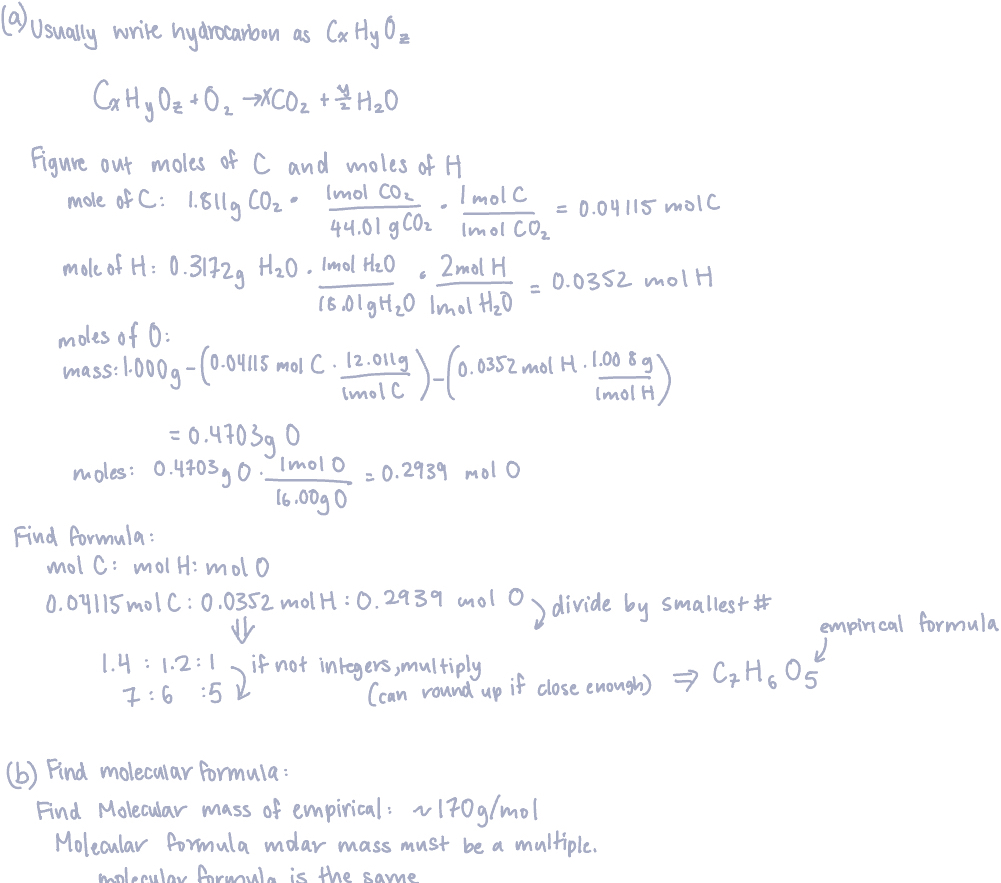 (a) Usually write hydrocarbon as CxHyOz
CxHyOz + O2 → xCO2 + y/2 H2O
Figure out moles of C and moles of H
mole of C: 1.811g CO2 • 1mol CO2 / 44.01 g CO2 • 1 mol C / 1mol CO2 = 0.04115 mol C
mole of H: 0.3172g H2O • 1mol H2O / 18.01gH2O • 2mol H / 1mol H2O = 0.0352 mol H
moles of O:
mass: 1.000g - (0.04115 mol C • 12.011g / 1mol C) - (0.0352 mol H • 1.008g / 1mol H)
= 0.4703g O
moles: 0.4703g O • 1mol O / 16.00g O = 0.2939 mol O
Find formula:
mol C: mol H: mol O
0.04115 mol C : 0.0352 mol H : 0.2939 mol O divide by smallest #
⇓ empirical formula
1.4 : 1.2 : 1 if not integers, multiply
7 : 6 : 5 (can round up if close enough) ⇒ C7H6O5
(b) Find molecular formula:
Find Molecular mass of empirical: ~170g/mol
Molecular formula molar mass must be a multiple.
molecular formula is the same